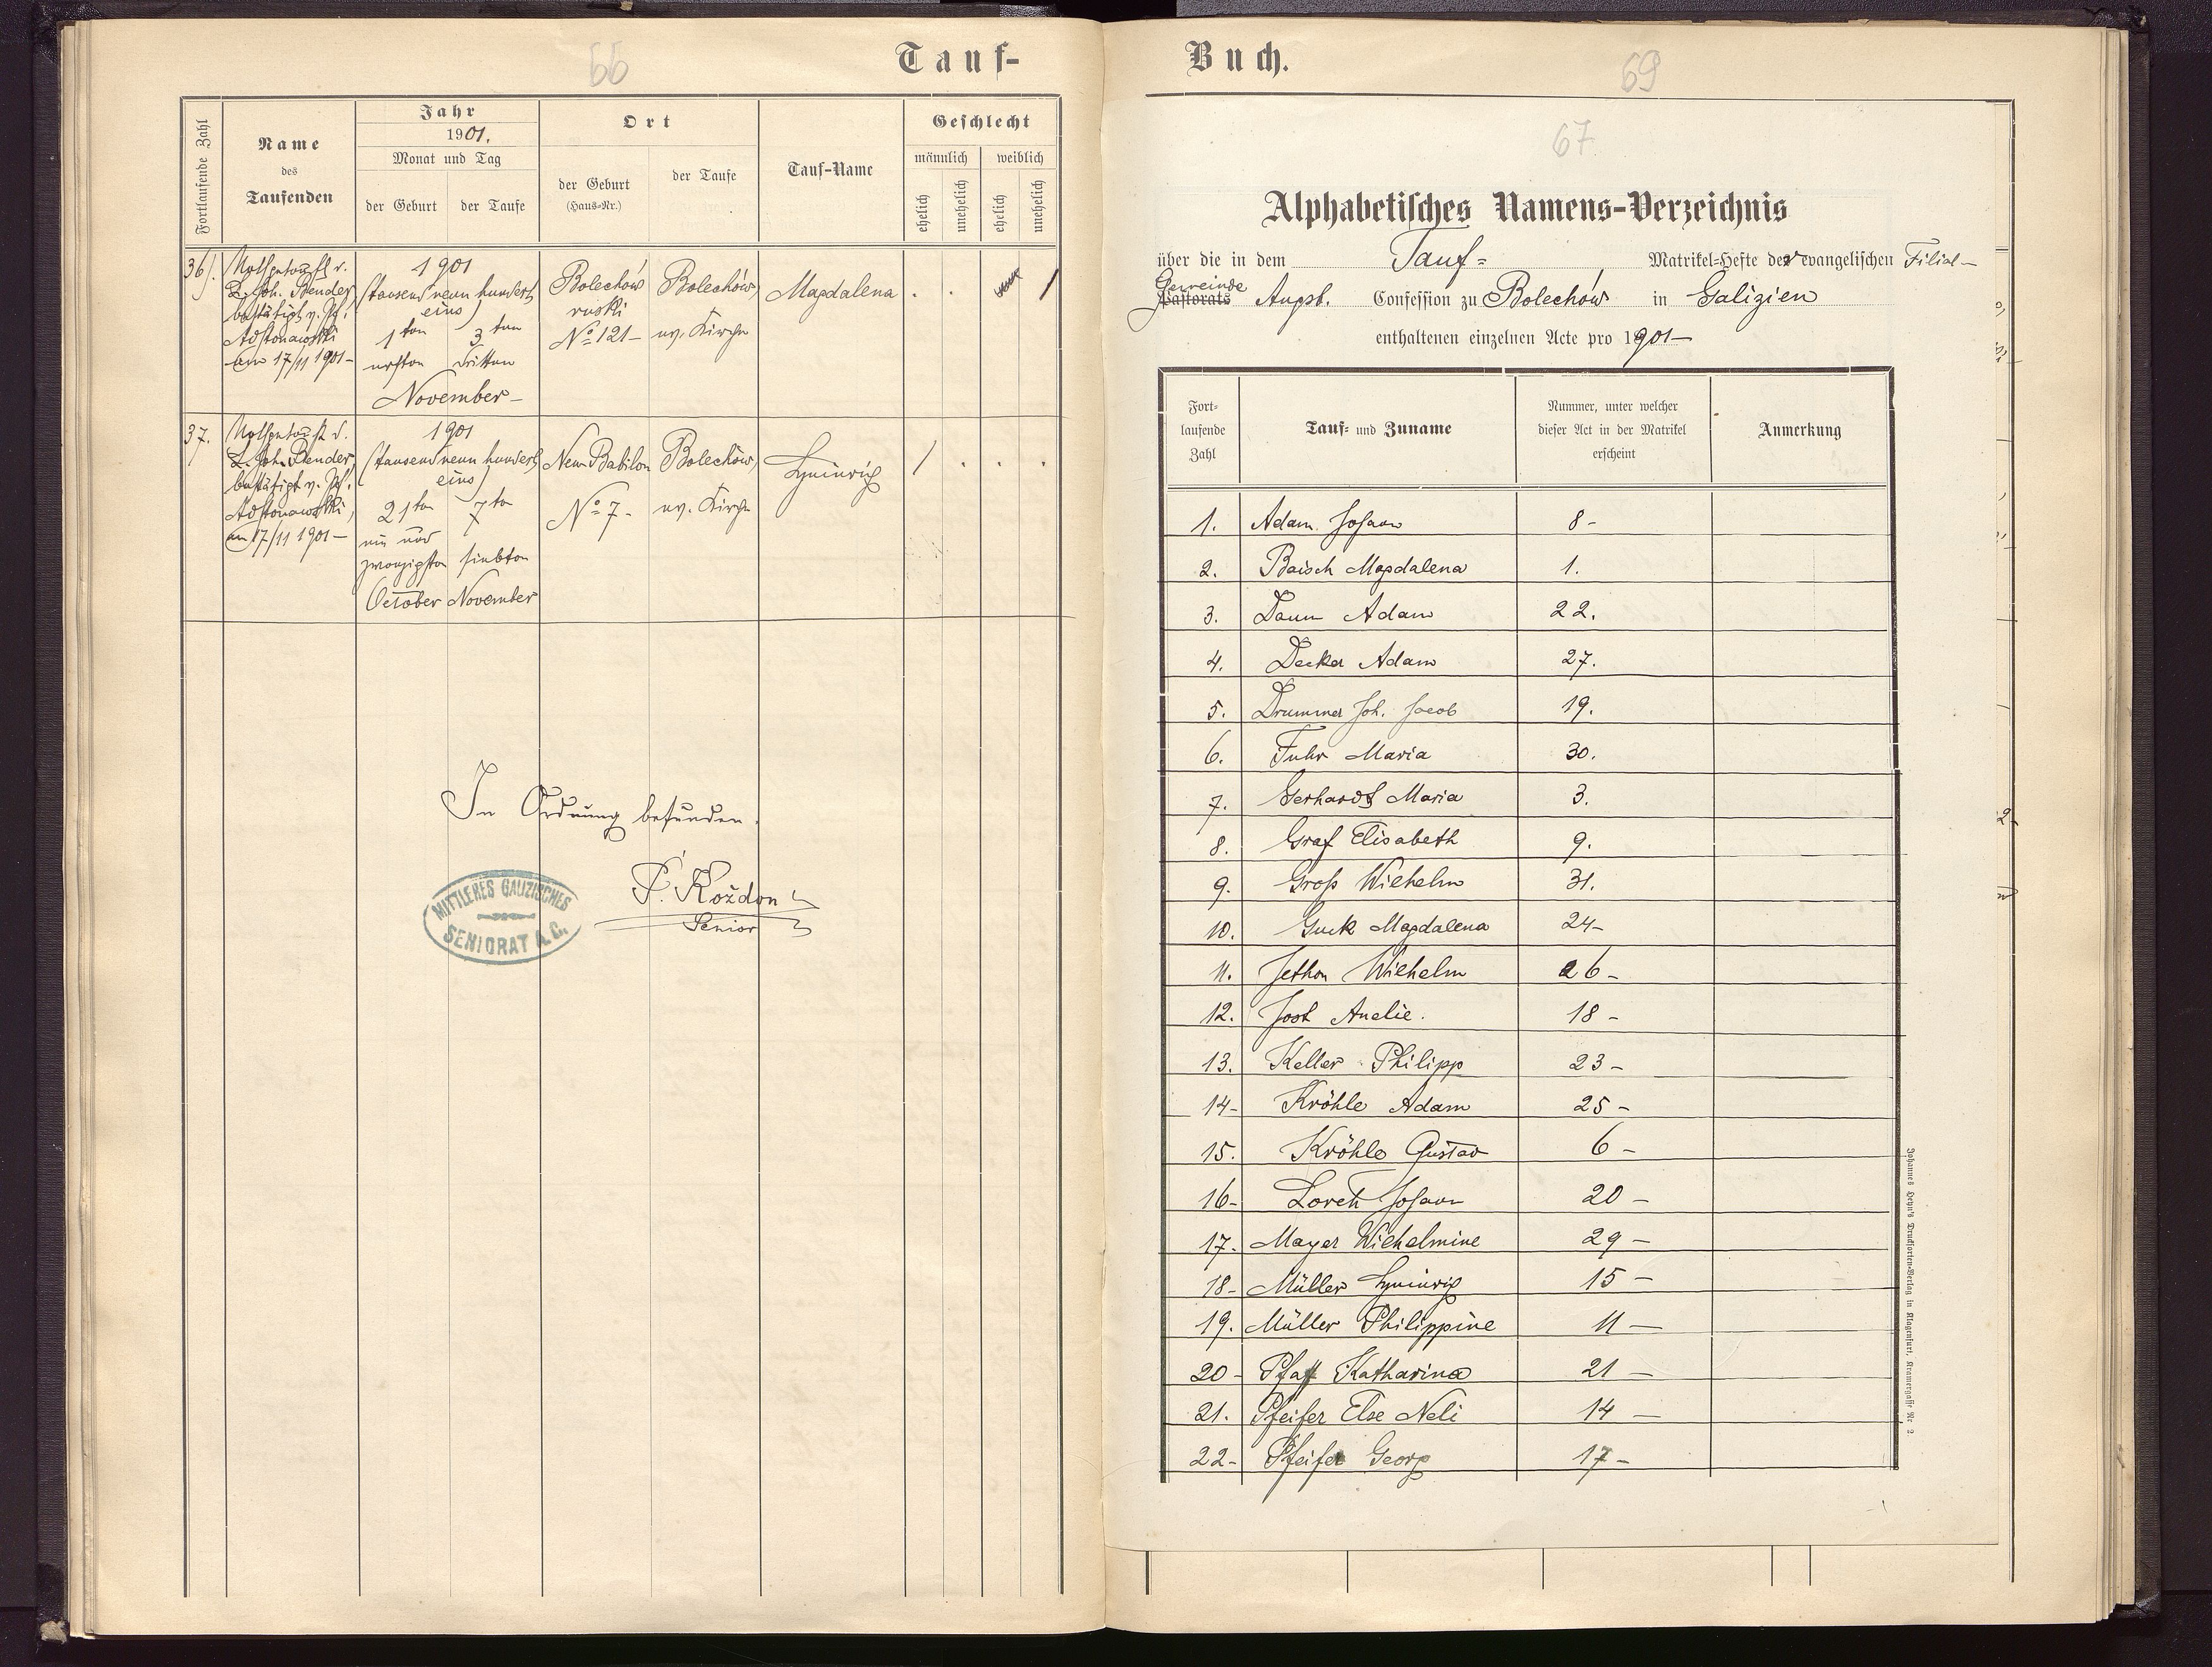 66
Tauf-
Fortlaufende Zahl
Name
des
Taufenden
Jahr
1901.
Monat und Tag
der Geburt
der Taufe
Ort
der Geburt
(Haus-Nr.)
der Taufe
Tauf-Name
Geschlecht
männlich
weiblich
ehelich
unehelich
ehelich
unehelich
36).
Nothgetauft v.
L. Joh. Bender,
bestätigt v. Pf.
am 17/11 1901-
1901
(tausend neun hundert
eins)
1ten
3ten
ersten
dritten
November-
Bolechów
ruski
No 121-
Bolechów,
ev. Kirche
Magdalena
.
.
/
37.
Nothgetauft d.
L. Joh. Bender,
bestätigt v. Pf.
am 17/11 1901-
1901
(tausend neun hundert
eins)
21ten
7ten
ein und
zwanzigsten
siebten
October
November
Neu Babilon
No 7-
Bolechów,
ev. Kirche
Heinrich
/
.
.
.
In Ordnung befunden.
MITTLERES GALIZISCHES
SENIORAT A.C.
F. Kożdon
Senior
Buch.
69
67
Alphabetisches Namens-Verzeichnis
über die in dem Tauf= Matrikel-Hefte der evangelischen Filial-
Gemeinde
Pastorats Augsb. Confession zu Bolechów in Galizien
enthaltenen einzelnen Acte pro 1901-
Fort-
laufende
Zahl
Tauf- und Zuname
Nummer, unter welcher
dieser Act in der Matrikel
erscheint
Anmerkung
1. Adam Johann 8-
2. Baisch Magdalena 1.
3. Daum Adam 22.
4. Decker Adam 27.
5. Drummer Joh. Jacob 19.
6. Fuhr Maria 30.
7. Gerhardt Maria 3.
8. Graf Elisabeth 9.
9. Groß Wilhelm 31.
10. Guck Magdalena 24-
11. Jethon Wilhelm 26-
12. Jost Amelie. 18-
13. Keller Philipp 23-
14- Kröhle Adam 25-
15. Kröhle Gustav 6-
16- Lorch Johann 20-
17- Mayer Wilhelmine 29-
18- Müller Heinrich 15-
19. Müller Philippine 11-
20- Pfaff Katharina 21-
21. Pfeifer Else Neli 14-
22- Pfeifer Georg 17-
Johannes Heyn's Drucksorten-Verlag in Klagenfurt, Kramergasse Nr. 2.